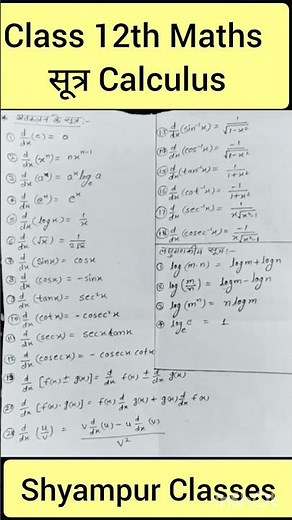 Class 12th Maths
सूत्र Calculus
* अवकलन के सूत्र :-
① d/dx (c) = 0
② d/dx (xⁿ) = nxⁿ⁻¹
③ d/dx (aˣ) = aˣ logₑ a
④ d/dx (eˣ) = eˣ
⑤ d/dx (log x) = 1/x
⑥ d/dx (√x) = 1/2√x
⑦ d/dx (sinx) = cosx
⑧ d/dx (cosx) = -sinx
⑨ d/dx (tanx) = sec²x
⑩ d/dx (cotx) = -cosec²x
⑪ d/dx (secx) = secx tanx
⑫ d/dx (cosecx) = - cosecx cotx
⑲ d/dx [f(x) ± g(x)] = d/dx f(x) ± d/dx g(x)
⑳ d/dx [f(x)·g(x)] = f(x) d/dx g(x) + g(x) d/dx f(x)
d/dx (u/v) = v d/dx (u) - u d/dx (v) / v²
⑬ d/dx (sin⁻¹x) = 1/√1-x²
⑭ d/dx (cos⁻¹x) = -1/√1-x²
⑮ d/dx (tan⁻¹x) = 1/1+x²
⑯ d/dx (cot⁻¹x) = -1/1+x²
⑰ d/dx (sec⁻¹x) = 1/x√x²-1
⑱ d/dx (cosec⁻¹x) = -1/x√x²-1
लघुगणकीय सूत्र :-
① log (m·n) = logm + logn
② log (m/n) = logm - logn
③ log (mⁿ) = n logm
④ logₑ e = 1
Shyampur Classes